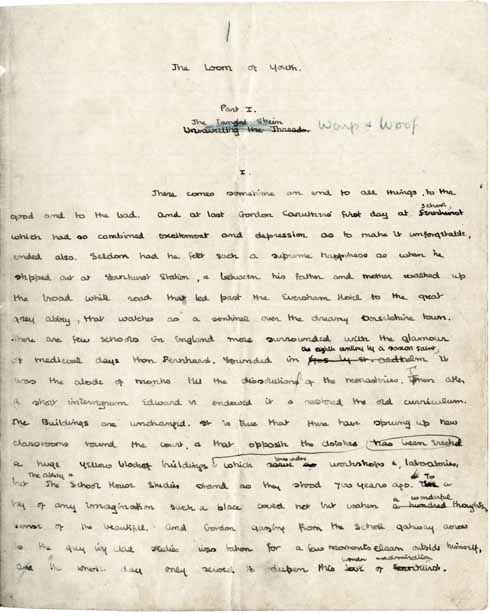 1
The Loom of Youth.
Part I.
The Tangled Skein
Unravelling the Threads Warp & Woof
I.
There comes sometime an end to all things, to the
School
good and to the bad. And at last Gordon Caruthers' first day at Fernhurst
which had so combined excitement and depression as to make it unforgettable,
ended also. Seldom had he felt such a supreme happiness as when he
stepped out at Fernhurst Station, & between his father and mother walked up
the broad white road that led past the Eversham Hotel to the great
grey abbey, that watches as a sentinel over the dreamy Dorsetshire town.
There are few schools in England more surrounded with the glamour
the eighth century by a saxon saint,
of mediaeval days than Fernhurst. Founded in it
was the abode of monks till the dissolution of the monasteries. Then after
a short interregnum Edward VI endowed it & restored the old curriculum.
The Buildings are unchanged. It is true that there have sprung up new
classrooms round the court, & that opposite the cloisters has been erected
a huge yellow block of buildings which workshops & laboratories,
The abbey &
but The School House Studies stand as they stood 700 years ago. To a
a wonderful
boy of any imagination such a place could not but waken a hundred thoughts,
sense of the beautiful. And Gordon gazing from the School gateway across
to the grey ivy clad studies was taken for a few moments clean outside himself,
and the whole day only served to deepen this love of Fernhurst.